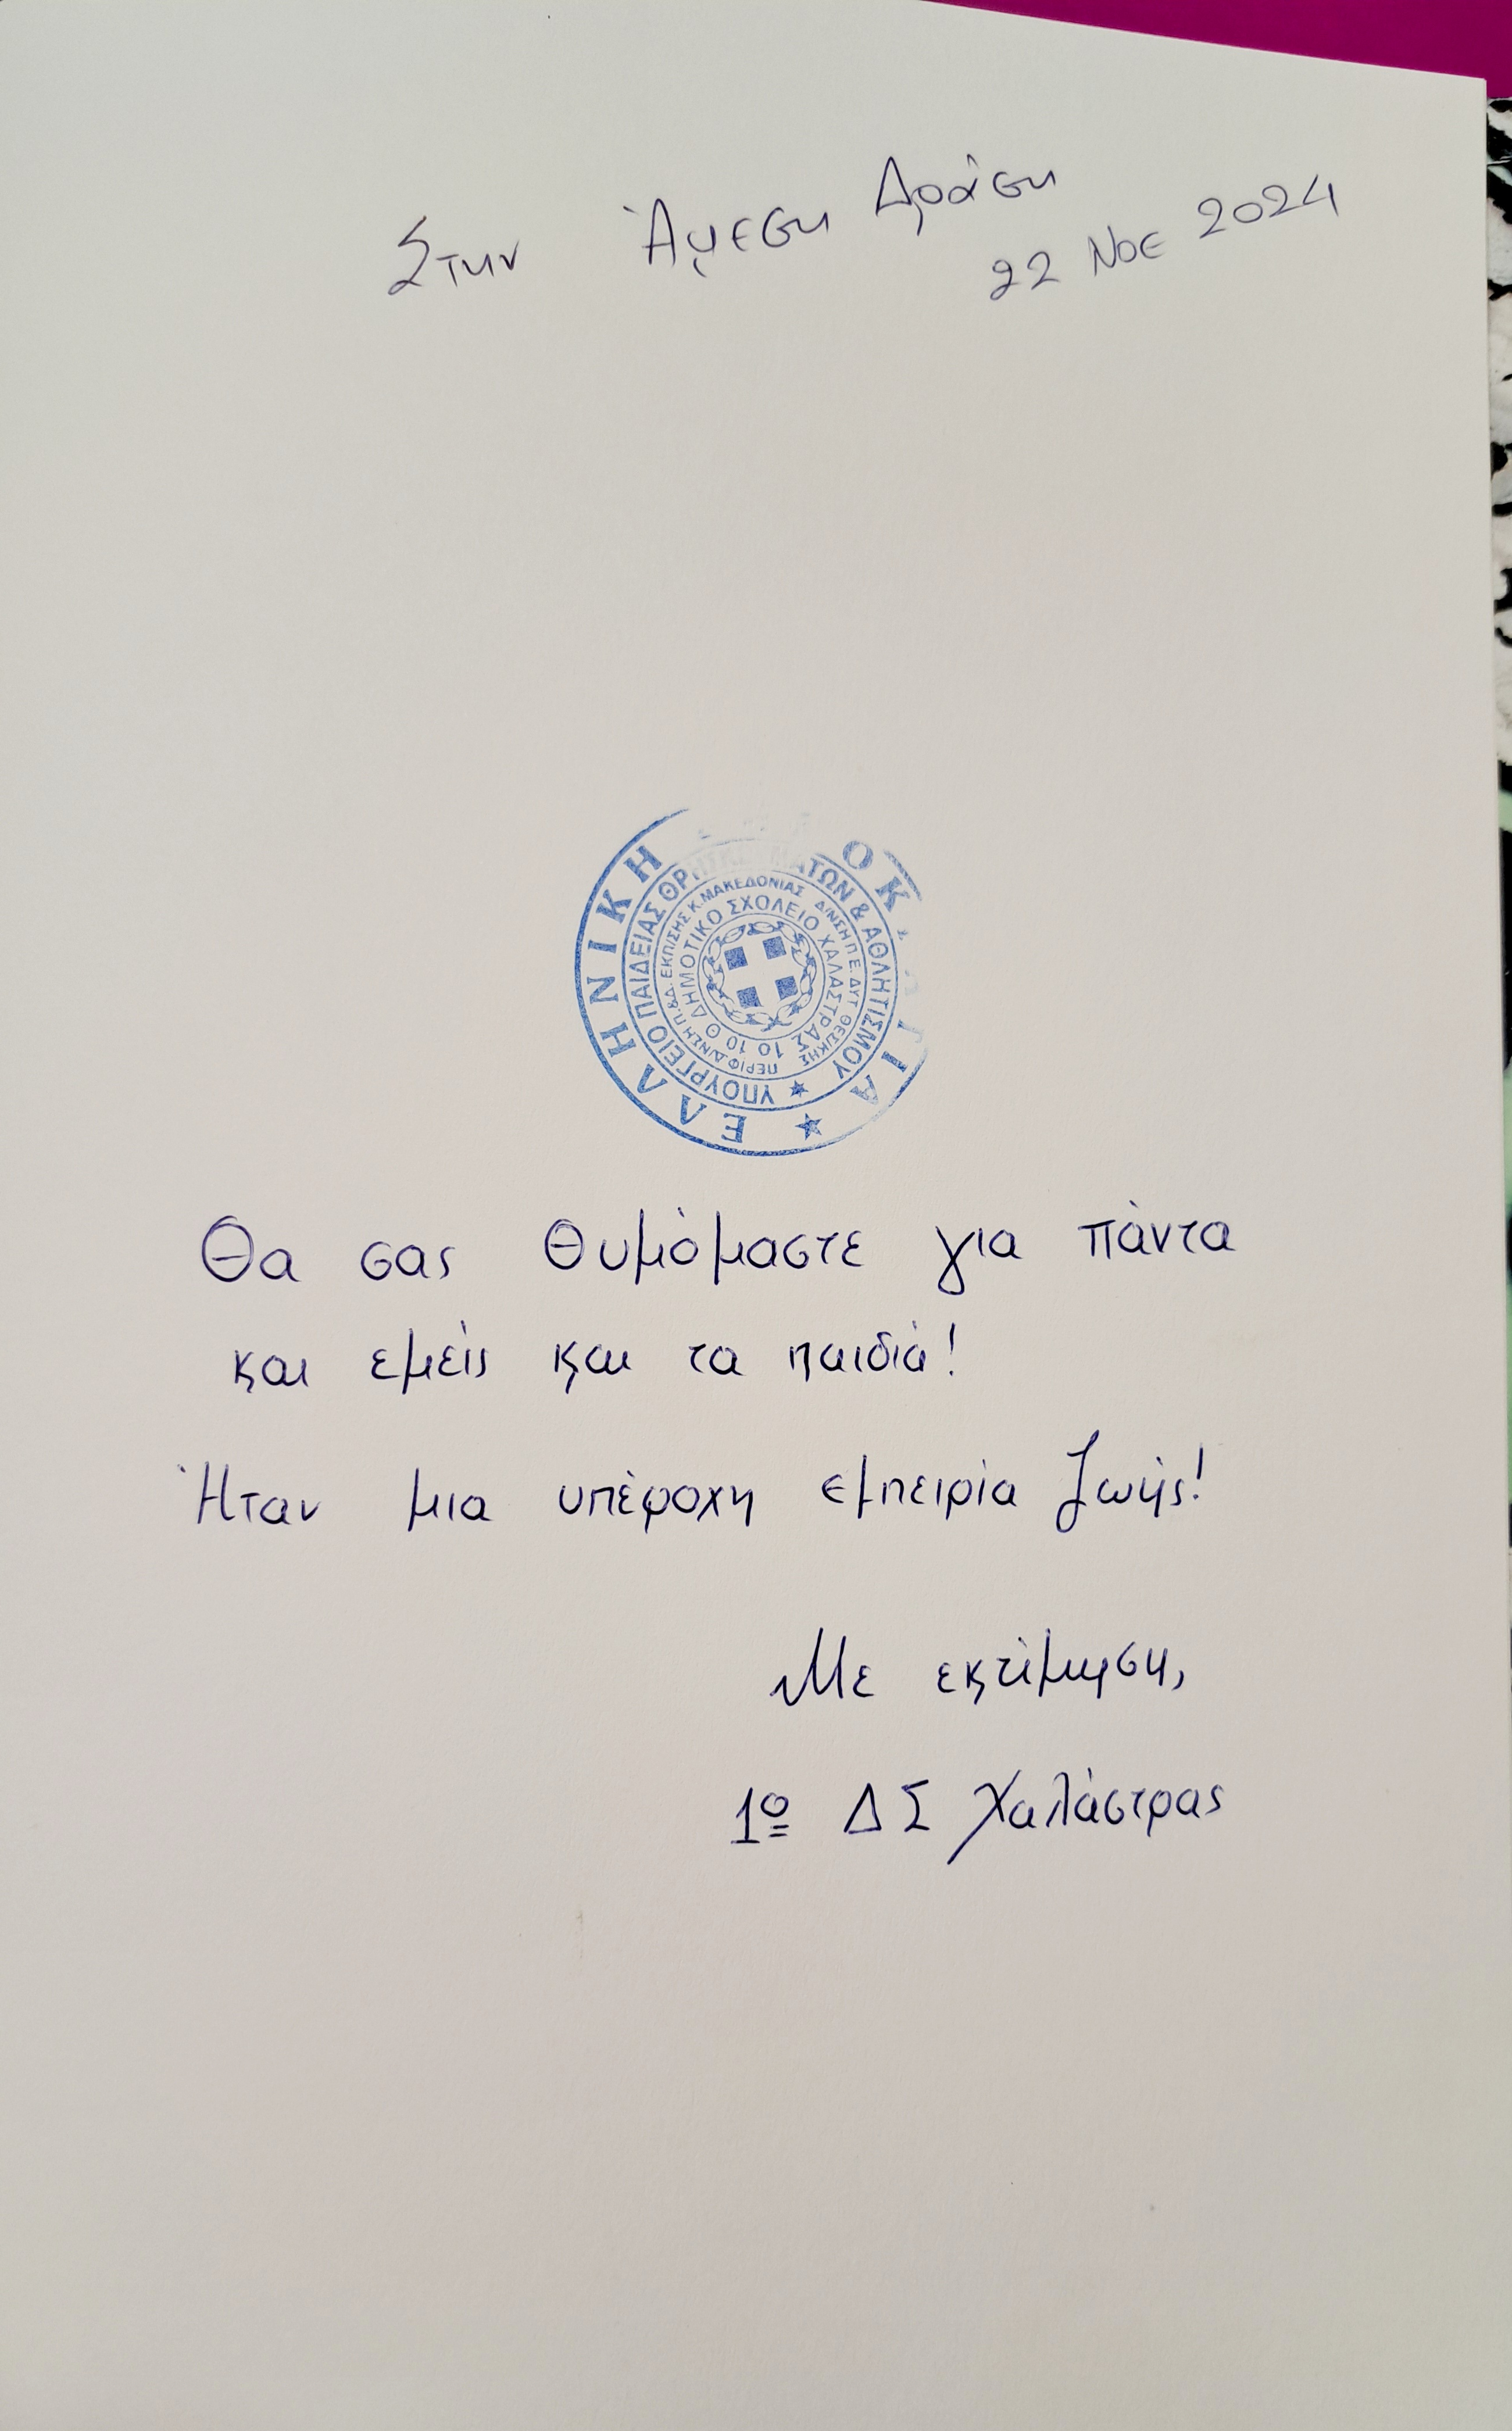 Στην Άμεση Δράση
22 Νοε 2024
ΕΛΛΗΝΙΚΗ
ΥΠΟΥΡΓΕΙΟ ΠΑΙΔΕΙΑΣ ΘΡΗΣΚΕΥΜΑΤΩΝ & ΑΘΛΗΤΙΣΜΟΥ
ΠΕΡΙΦ. Δ/ΝΣΗ Π.&Δ. ΕΚΠ/ΣΗΣ Κ. ΜΑΚΕΔΟΝΙΑΣ Δ/ΝΣΗ Π.Ε. ΔΥΤ. ΘΕΣ/ΚΗΣ
10 Θ ΔΗΜΟΤΙΚΟ ΣΧΟΛΕΙΟ ΧΑΛΑΣΤΡΑΣ 1ο
Θα σας θυμόμαστε για πάντα
και εμείς και τα παιδιά!
Ήταν μια υπέροχη εμπειρία ζωής!
Με εκτίμηση,
1ο ΔΣ Χαλάστρας